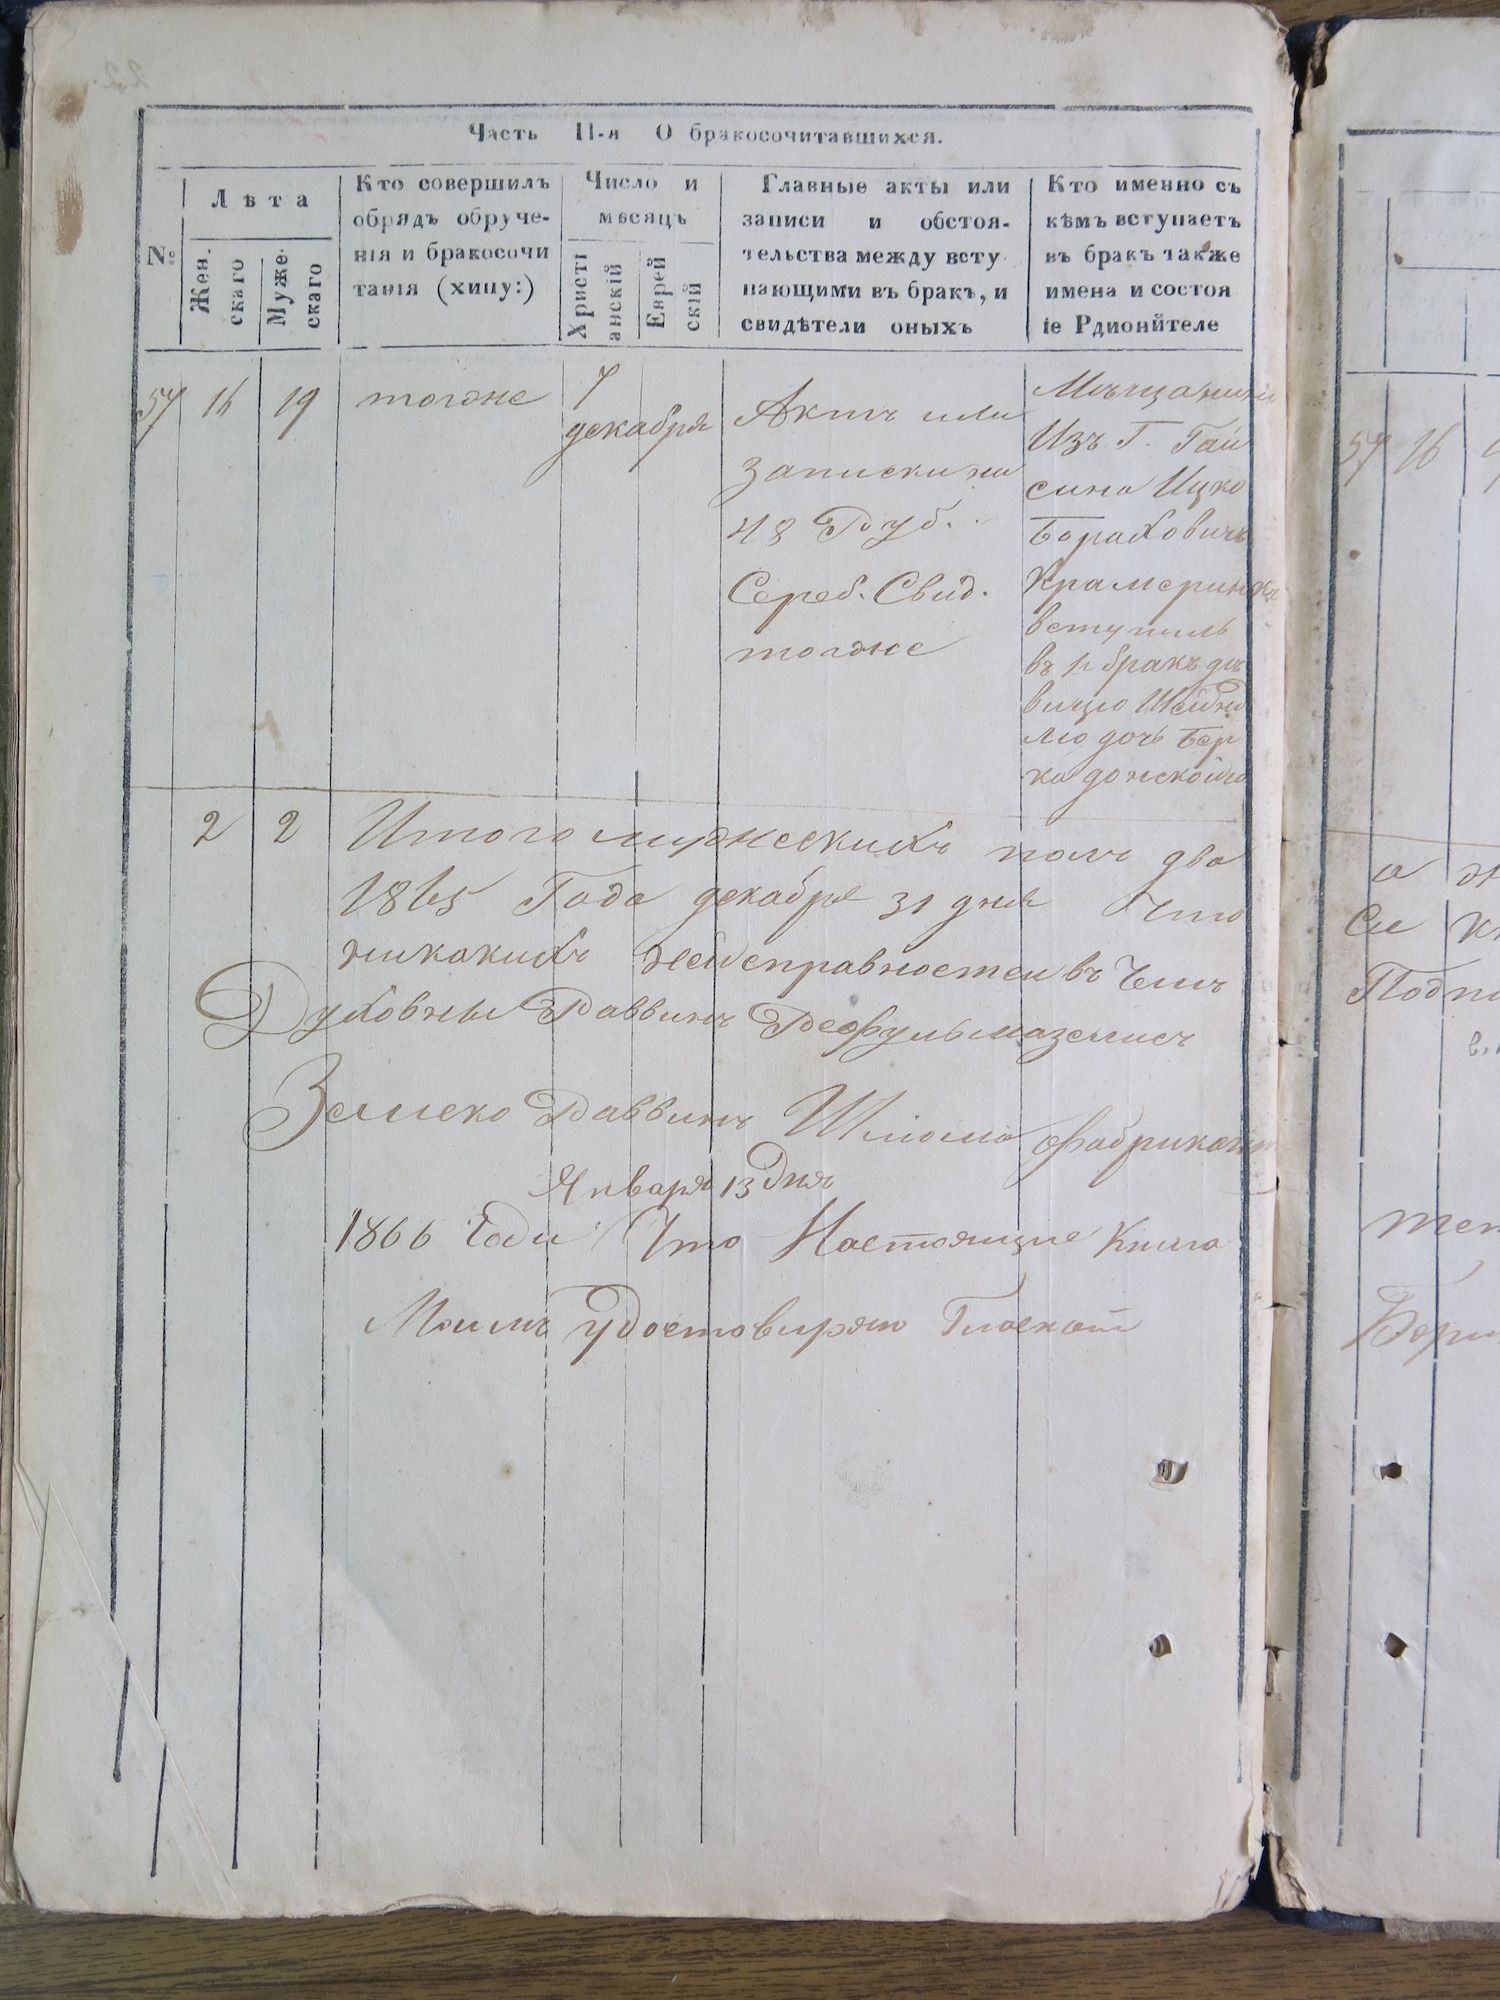 Часть II-я О бракосочитавшихся.
№
Лѣта
Жен.
скаго
Муже
скаго
Кто совершилъ
обрядъ обруче-
нія и бракосочи
танія (хипу:)
Число и
мѣсяцъ
Христі
анскій
Еврей
скій
Главные акты или
записи и обстоя-
тельства между всту
пающими въ бракъ, и
свидѣтели оныхъ
Кто именно съ
кѣмъ вступаетъ
въ бракъ также
имена и состоя
іе Рдионйтеле
57 16 19 тотже
7
декабря
Актъ или
записки на
48 Руб.
Сереб. Свид.
тотже
Мѣщанинъ
Изъ Г. Гай
сина Ицко
Бораховичъ
Крамеринкъ
вступилъ
въ 1й бракъ дѣ
вицею
лю дочь Бер
ка донской
2 2 Итого мужескихъ полъ два
1865 Года декабря 31 дня Что
никакихъ неисправностеи въ Чемъ
Духовны Раввинъ
Раввинъ Шлома Фабрикант
Января 13 Дня
1866 Года Что Настоящие Книга
Удостовиряю
57 16